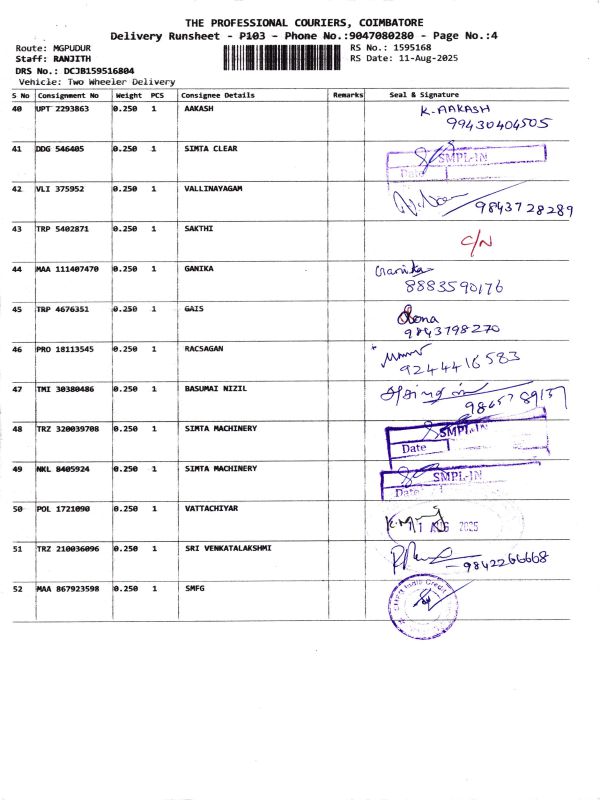 THE PROFESSIONAL COURIERS, COIMBATORE
Delivery Runsheet - P103 - Phone No.:9047080280 - Page No.:4
Route: MGPUDUR
RS No.: 1595168
Staff: RANJITH
RS Date: 11-Aug-2025
DRS No.: DCJB159516804
Vehicle: Two Wheeler Delivery
S No Consignment No Weight PCS Consignee Details Remarks Seal & Signature
40 UPT 2293863 0.250 1 AAKASH K. AAKASH
99430404505
41 DDG 546405 0.250 1 SIMTA CLEAR SMPL-IN
Date
42 VLI 375952 0.250 1 VALLINAYAGAM
9843728289
43 TRP 5402871 0.250 1 SAKTHI C/N
44 MAA 111407470 0.250 1 GANIKA Ganika
8883590176
45 TRP 4676351 0.250 1 GAIS
9843798270
46 PRO 18113545 0.250 1 RACSAGAN
9244416583
47 TMI 30380486 0.250 1 BASUMAI NIZIL
48 TRZ 320039708 0.250 1 SIMTA MACHINERY SMPL-IN
Date
49 NKL 8405924 0.250 1 SIMTA MACHINERY SMPL-IN
Date
50 POL 1721090 0.250 1 VATTACHIYAR
2025
51 TRZ 210036096 0.250 1 SRI VENKATALAKSHMI
9842266668
52 MAA 867923598 0.250 1 SMFG India Credit